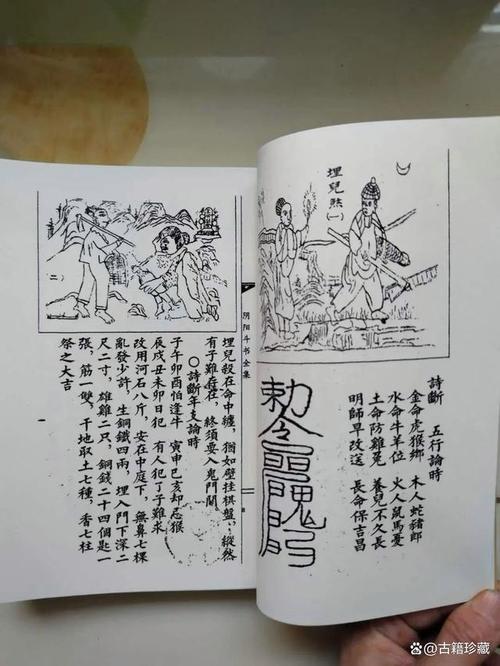 埋兒煞(一)
詩斷 五行論時
金命虎猴鄉 木人蛇豬郎
水命牛羊位 火人鼠馬憂
土命防雞兔 養兒不久長
明師早改送 長命保吉昌
勅令
阴阳斗书全集
(二)
埋兒殺在命中纏,猶如壁挂棋盤,縱然
有子難存在,終須要入鬼門關
○詩斷年支論時
子午卯酉怕逢牛 寅申巳亥却忌猴
辰戌丑未卯日犯 有人犯了子難求
改用河石八斤,安在中庭下,無鼻七棵
亂發少許,生銅鐵四兩,埋入門下深二
尺二寸,雄雞二只,銅錢二十四個匙一
張,筋一雙,干地取土七種,香七柱
祭之大吉
@古籍珍藏